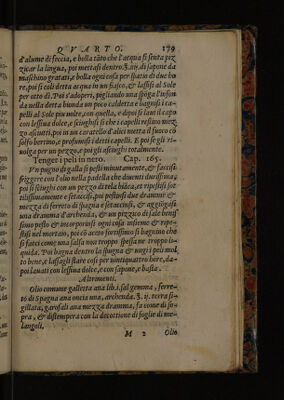 QVARTO. 179
d'alume di feccia, e bolla tāto che l'acqua si senta piz
zicar la lingua, poi mettasi dentro ℥. iiij. di sapone da
maschino gratati, e bolla ogni cosa per spatio di due ho
re, poi si coli detta acqua in un fiasco, & lassisi al Sole
per otto dì. Poi s'adoperi, pigliando una spōga l'infon
da nella detta bionda un poco caldetta e bagnisi i ca-
pelli al Sole piu uolte, con quella, e dopoi si laui il capo
con lessiua dolce, e sciughisi sì che i capelli restino mez
zo asciutti, poi in un cauatello d'alici metta il fuoco cō
solfo borrino, e profumisi i detti capelli. E poi se gli ri-
uolga per un pezzo, e poi gli asciughi totalmente.
Tenger i peli in nero. Cap. 165.
V'n pugno di galla si pesti minutamente, & faccisi
friggere con l'olio nella padella che diuenti durissima,
poi si sciughi con un pezzo di tela bāca, et ripestisi sot
tilissimamente e setaccisi, poi pestisi due dramme &
mezza di ferreto di spagna e setaccinsi, & aggiōgasi
una dramma d'archenda, & un pizzico di sale benis
simo pesto & incorporisi ogni cosa insieme & ripe-
stisi nel mortaio, poi cō aceto fortissimo si bagnino che
si facci come una salsa non troppo spessa ne troppo li-
quida. Poi bagna dentro la spugna & ungi i peli mol
to bene, & lassagli stare cosi per uintiquattro hore, da-
poi lauati con lessiua dolce, e con sapone, e basta.
Altrimenti.
Olio comune galletta ana lib. i. sal gemma, ferre-
to di Spagna ana oncia una, archenda. ℥. ij. terra si-
gillata, garofali ana mezza dramma, fa come di so-
pra, & distempera con la decottione di foglie di me-
langoli.
M 2 Olio